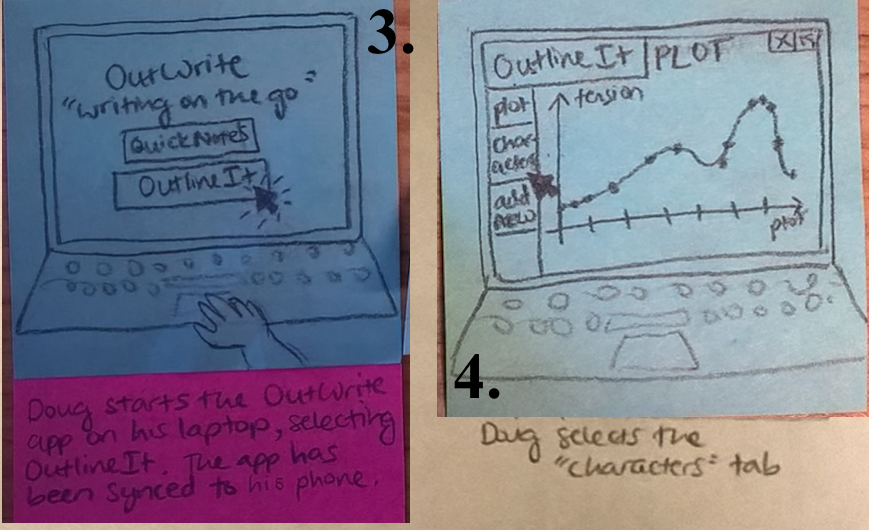 3.
OutWrite
"writing on the go"
QuickNotes
OutlineIt
Doug starts the OutWrite
app on his laptop, selecting
OutlineIt. The app has
been synced to his phone.
OutlineIt PLOT X
plot
char-
acters
add
new
tension
plot
4.
Doug selects the
"characters" tab